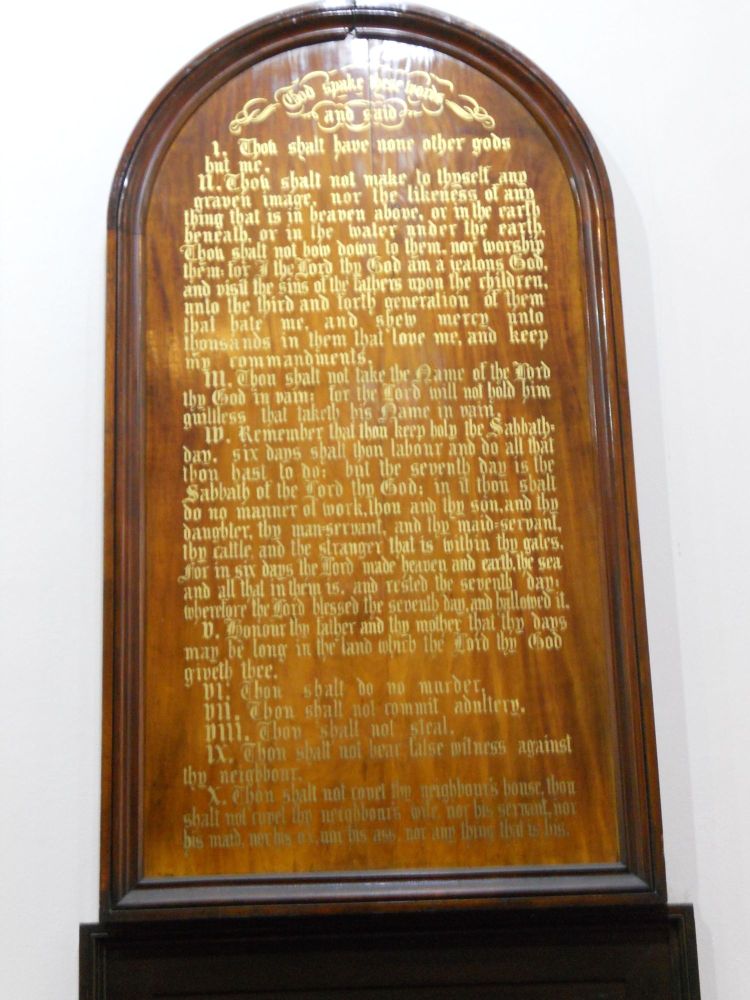 God spake these words
and said
I. Thou shalt have none other gods
but me.
II. Thou shalt not make to thyself any
graven image, nor the likeness of any
thing that is in heaven above, or in the earth
beneath, or in the water under the earth.
Thou shalt not bow down to them, nor worship
them: for I the Lord thy God am a jealous God,
and visit the sins of the fathers upon the children,
unto the third and forth generation of them
that hate me, and shew mercy unto
thousands in them that love me, and keep
my commandments.
III. Thou shalt not take the Name of the Lord
thy God in vain: for the Lord will not hold him
guiltless that taketh his Name in vain.
IV. Remember that thou keep holy the Sabbath-
day. six days shalt thou labour and do all that
thou hast to do; but the seventh day is the
Sabbath of the Lord thy God; in it thou shalt
do no manner of work, thou and thy son, and thy
daughter, thy man-servant, and thy maid-servant,
thy cattle, and the stranger that is within thy gates.
For in six days the Lord made heaven and earth, the sea
and all that in them is, and rested the seventh day;
wherefore the Lord blessed the seventh day, and hallowed it.
V. Honour thy father and thy mother that thy days
may be long in the land which the Lord thy God
giveth thee.
VI. Thou shalt do no murder.
VII. Thou shalt not commit adultery.
VIII. Thou shalt not steal.
IX. Thou shalt not bear false witness against
thy neighbour.
X. Thou shalt not covet thy neighbour's house, thou
shalt not covet thy neighbour's wife, nor his servant, nor
his maid, nor his ox, nor his ass, nor any thing that is his.